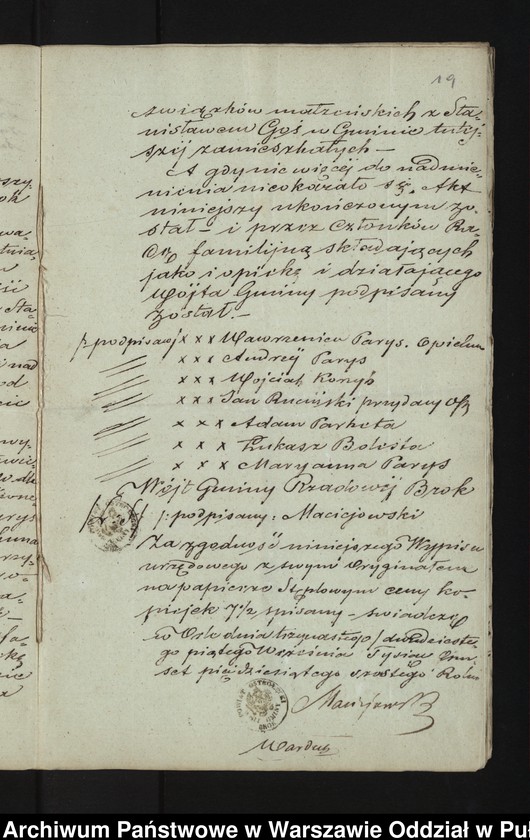 19
związków małżeńskich z Sta-
nisławem Goś w Gminie tutej-
szej zamieszkałych –
A gdy nic więcej do nadmie-
nienia nie okazało się. Akt
niniejszy ukończonym zo-
stał – i przez Członków Ra-
dę familijną składających
jako i opiekę i działającego
Wójta Gminy podpisany
został. –
/: podpisani / x x x Wawrzeniec Parys. Opiekun
x x x Andrzej Parys
x x x Wojciech
x x x Jan Ruciński przydany
x x x Adam
x x x Łukasz
x x x Maryanna Parys
Wójt Gminy Rządowej Brok
/: podpisany : Maciejowski
Za zgodność niniejszego Wypisu
urzędowego z swym Oryginałem
na papierze Stęplowym ceny ko-
piejek 7 1/2 spisany – świadczę
w dnia trzynastego / dwudzieste-
go piątego Września Tysiąc Ośm-
set pięćdziesiątego szóstego Roku
Maciejowski
Archiwum Państwowe w Warszawie Oddział w Puł